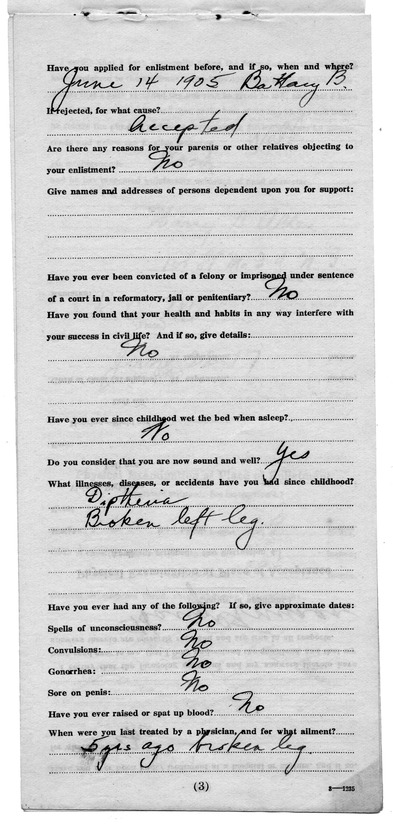 Have you applied for enlistment before, and if so, when and where?
June 14 1905 Battary B.
If rejected, for what cause?
Accepted
Are there any reasons for your parents or other relatives objecting to
your enlistment? No
Give names and addresses of persons dependent upon you for support:
Have you ever been convicted of a felony or imprisoned under sentence
of a court in a reformatory, jail or penitentiary? No
Have you found that your health and habits in any way interfere with
your success in civil life? And if so, give details:
No
Have you ever since childhood wet the bed when asleep?
No
Do you consider that you are now sound and well? Yes
What illnesses, diseases, or accidents have you had since childhood?
Diptheria
Broken left leg.
Have you ever had any of the following? If so, give approximate dates:
Spells of unconsciousness? No
Convulsions: No
Gonorrhea: No
Sore on penis: No
Have you ever raised or spat up blood? No
When were you last treated by a physician, and for what ailment?
5 yrs ago broken leg.
(3)
3—1235